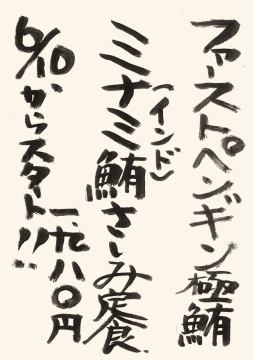 ファーストペンギン極鮪
ミナミ鮪さしみ定食
(インド)
6/10からスタート!!
一、九八〇円